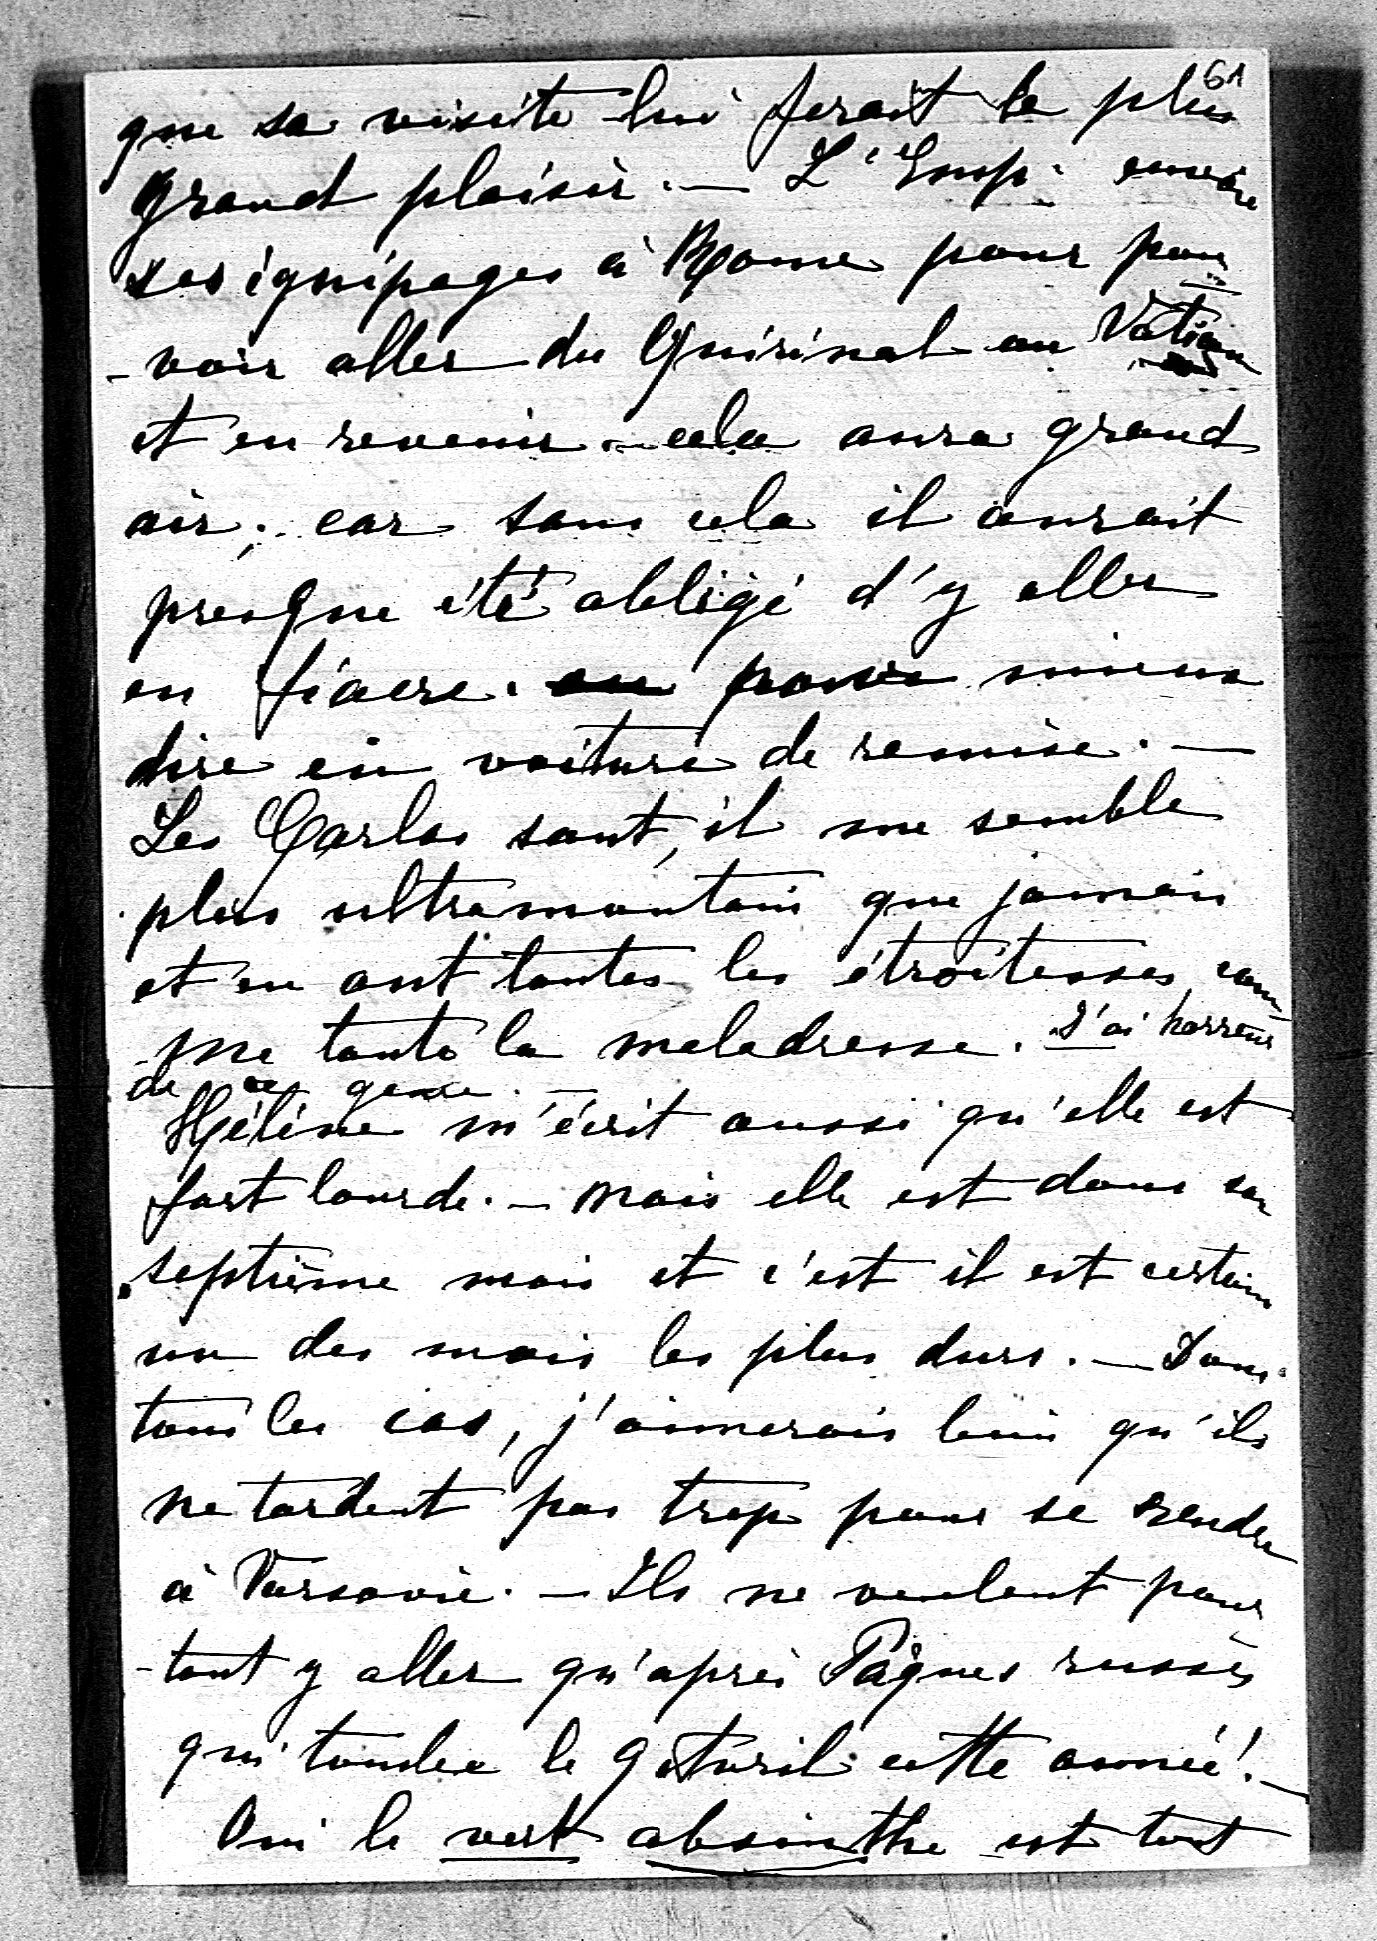 61
que sa visite lui ferait le plus
grand plaisir. — L'Emp. envoie
ses équipages à Rome pour pou
-voir aller du Quirinal au Vatican
et en revenir. cela aura grand
air, car sans cela il aurait
presque été obligé d'y aller
en fiacre. ou pour mieux
dire en voiture de remise. —
Les Carlos sont, il me semble
plus ultramontain que jamais
et en ont toutes les étroitesses com
-me toute la maladresse. J'ai horreur
de ce genre. —
Hélène m'écrit aussi qu'elle est
fort lourde. — Mais elle est dans son
septième mois et c'est il est certain
un des mois les plus durs. — Dans
tous les cas, j'aimerais bien qu'ils
ne tardent pas trop pour se rendre
à Varsovie. — Ils ne veulent pour
-tant y aller qu'après Pâques russes
qui tombe le 9 Avril cette année!. —
Oui le vert absinthe est tout